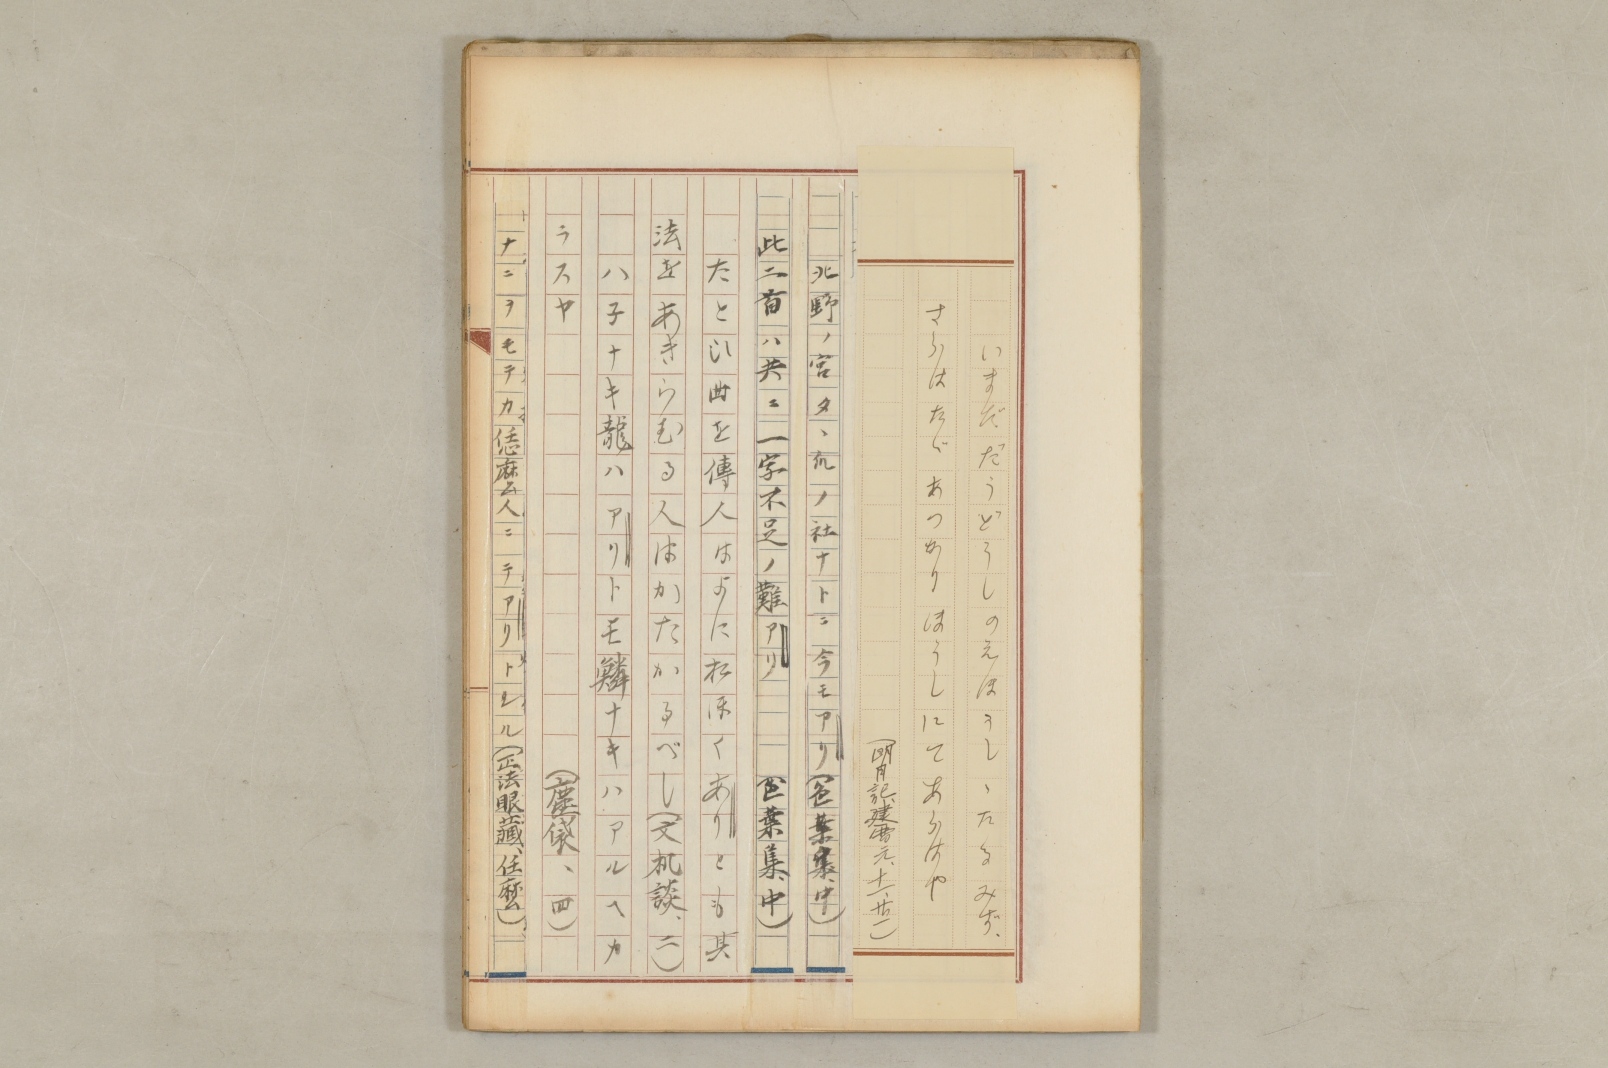 いまだだうどうしのえぼうし、たるみず、
さらはたゞあつかりほうしにてあらはや
(明月記、建暦元、十一、廿一)
北野ノ宮タヽ瓜ノ社ナトニ今モアリ(色葉集、中)
此二首ハ共ニ一字不足ノ難アリ(色葉集、中)
たとひ曲を傳人はよにおほくありとも其
法をあきらむる人はかたかるべし(文机談、二)
ハ子ナキ龍ハアリトモ鱗ナキハアルヘカ
ラスヤ(塵袋、四)
ナニヲモテカ恁麼人ニテアリトシル(正法眼藏、恁麼)